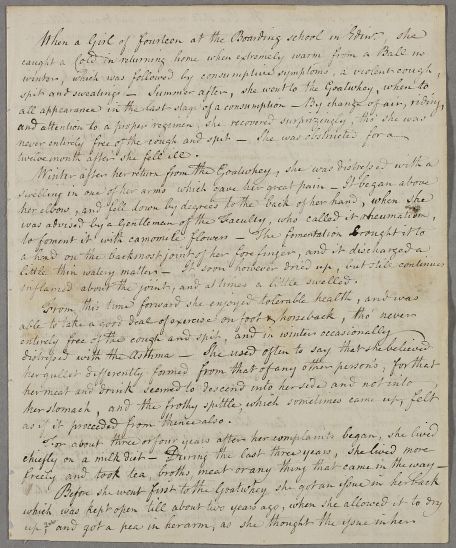 When a Girl of fourteen at the Boarding school in Edinr. she
caught a Cold in returning home when extremely warm from a Ball in
winter, which was followed by consumptive symptoms, a violent cough,
spit and sweatings – Summer after, she went to the Goatwhey, when to
all appearance in the last stage of a consumption – By change of air, riding,
and attention to a proper regimen, she recovered surprizingly, tho' she was
never entirely free of the cough and spit – She was obstructed for a
twelve month after she fell ill.
Winter after her return from the Goatwhey, she was distressed with a
swelling in one of her arms which gave her great pain – It began above
her elbow, and fell down by degrees to the back of her hand, when she
was advised by a Gentleman of the Faculty, who called it rheumatism,
to foment it with camomile flowers – The fomentation brought it to
a head on the backmost joint of her fore finger, and it discharged a
little thin watery matter – It soon however dried up, but still continues
inflamed about the joint, and at times a little swelled.
From this time forward she enjoyed tolerable health, and was
able to take a good deal of exercise on foot & horseback, tho' never
entirely free of the cough and spit, and in winter occasionally
distressed with the Asthma – She used often to say that she believed
her gullet differently formed from that of any other persons, for that
her meat and drink seemed to descend into her side and not into
her stomach, and the frothy spittle, which sometimes came up, felt
as if it proceeded from thence also.
For about three or four years after her complaints began, she lived
chiefly on a milk diet – During the last three years, she lived more
freely and took tea, broths, meat or any thing that came in the way –
Before she went first to the Goatwhey, she got an issue in her back
which was kept open till about two years ago, when she allowed it to dry
up and got a pea in her arm, as she thought the issue in her